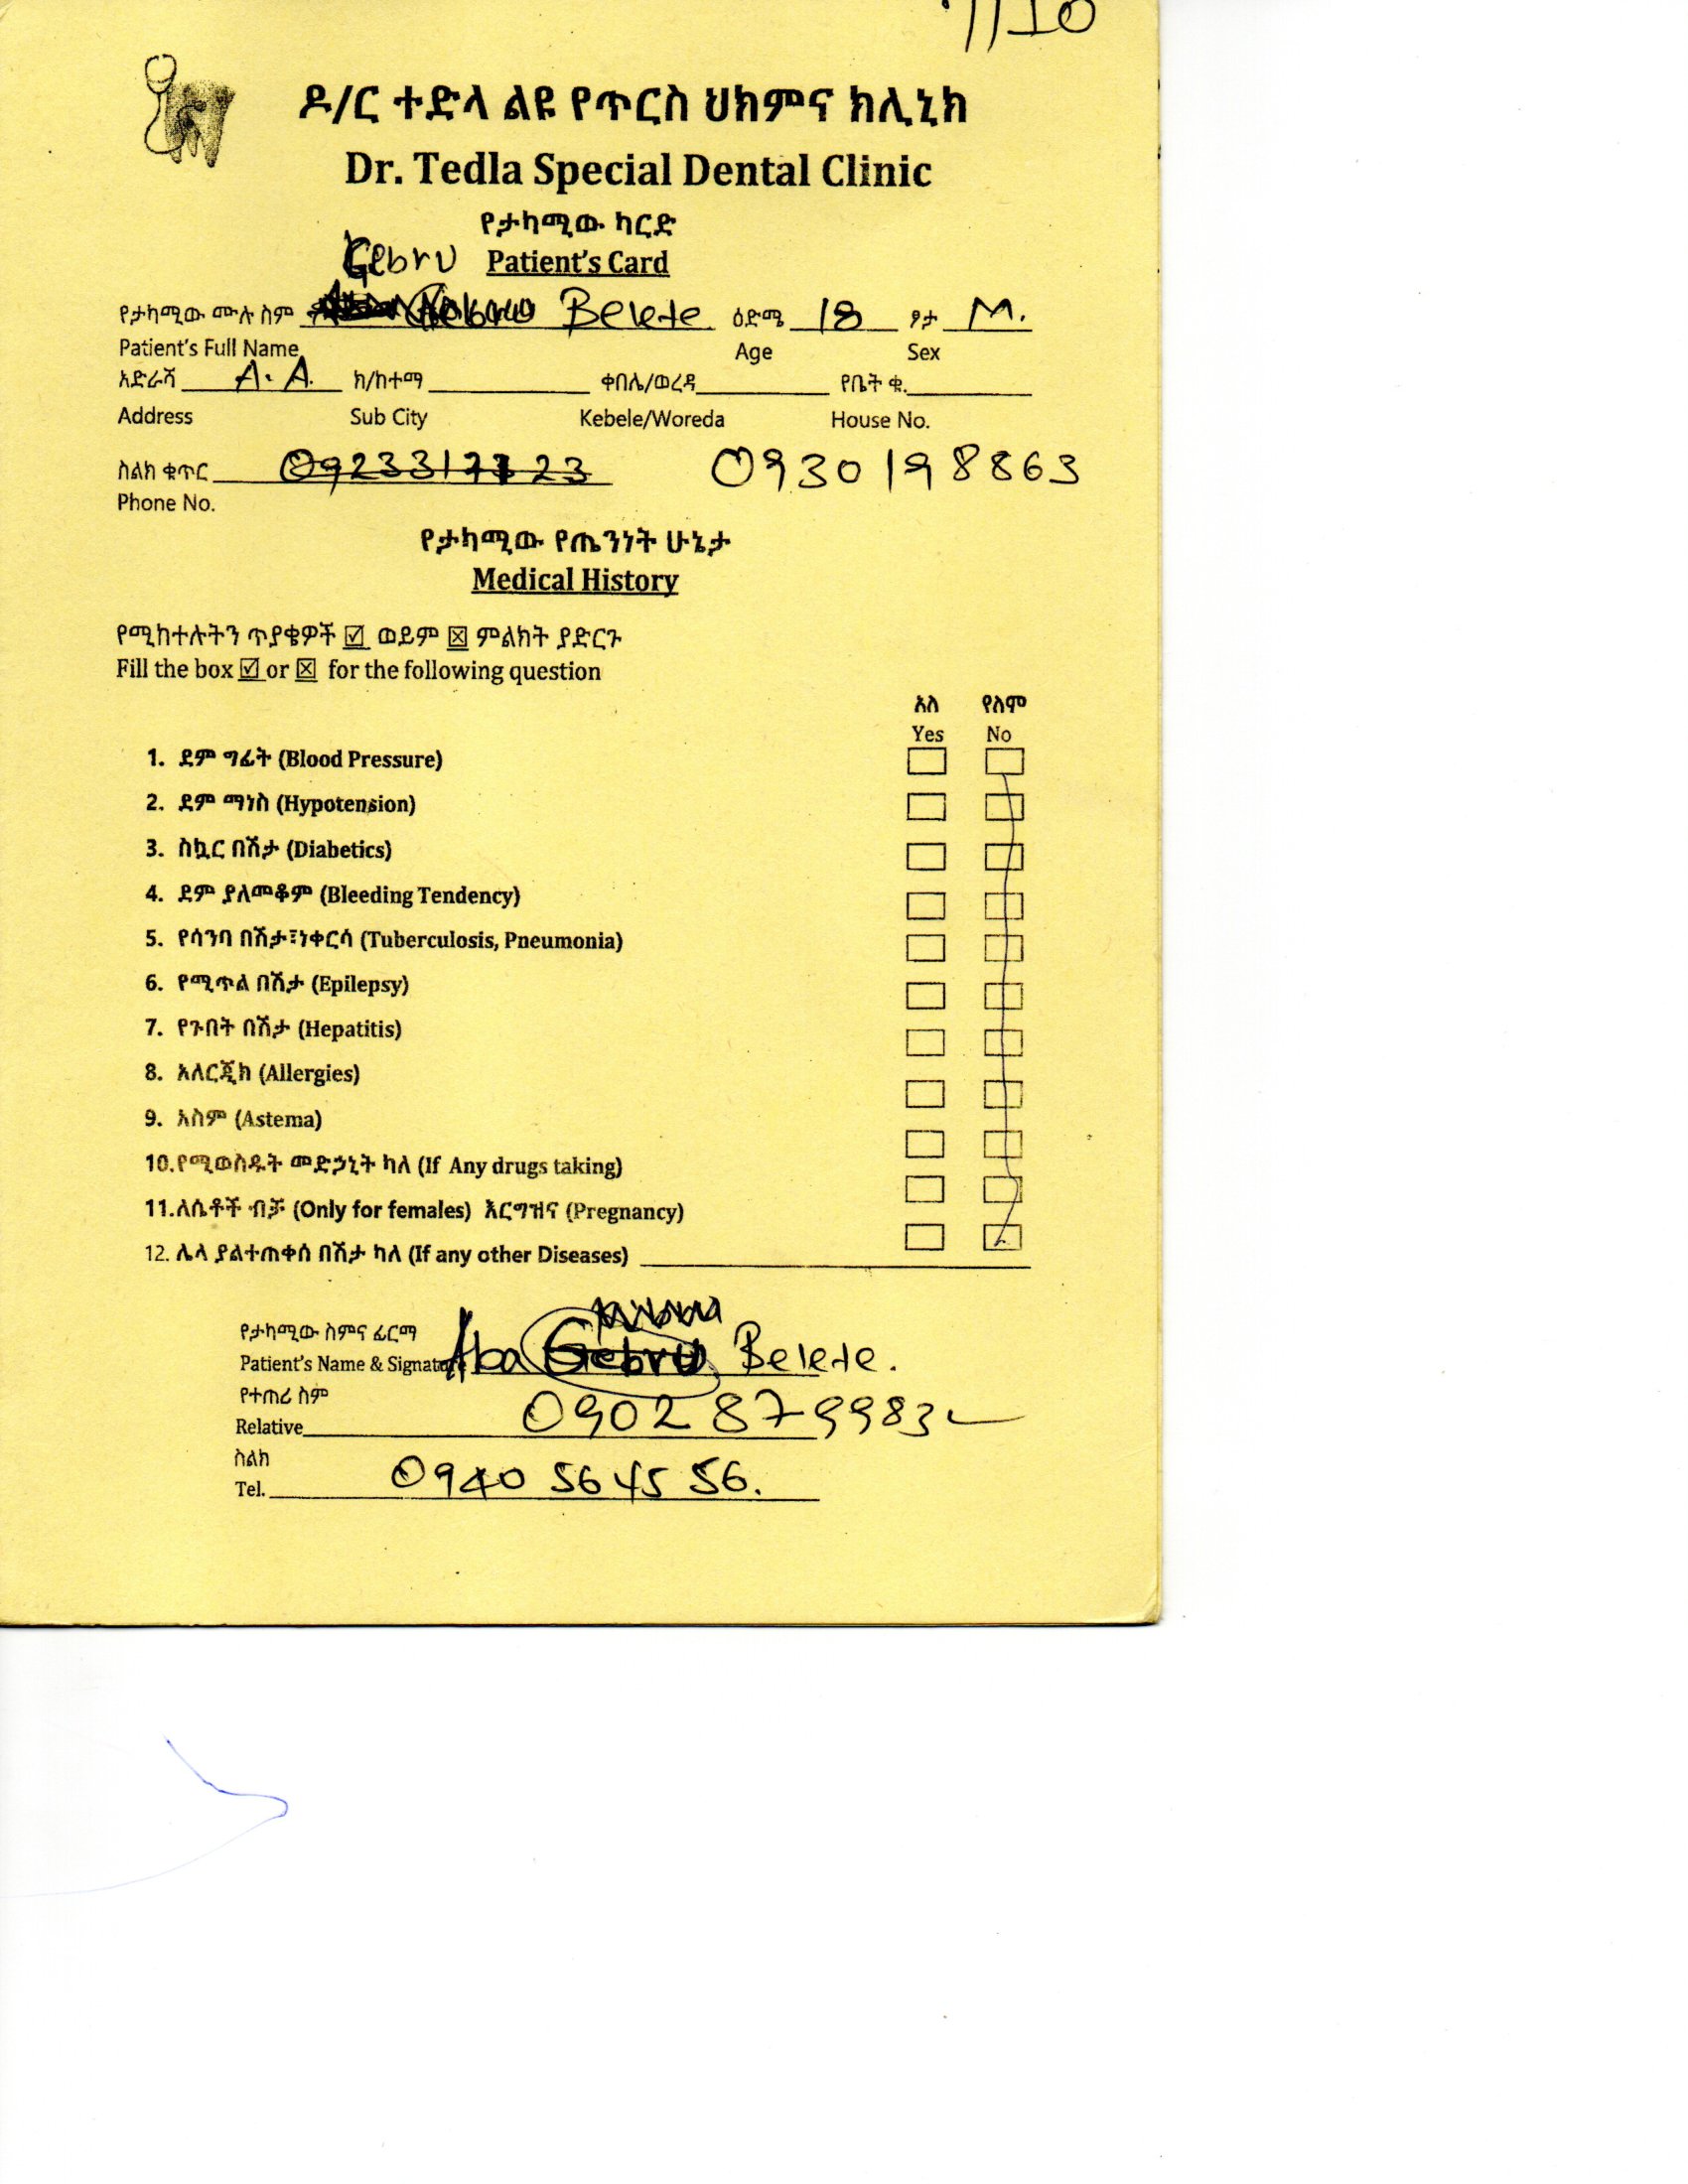 7/10
ዶ/ር ተድላ ልዩ የጥርስ ህክምና ክሊኒክ
Dr. Tedla Special Dental Clinic
የታካሚው ካርድ
Gebru Patient's Card
የታካሚው ሙሉ ስም Belete ዕድሜ 18 ፆታ M.
Patient's Full Name Age Sex
አድራሻ A.A. ክ/ከተማ ቀበሌ/ወረዳ የቤት ቁ.
Address Sub City Kebele/Woreda House No.
ስልክ ቁጥር 0930198863
Phone No.
የታካሚው የጤንነት ሁኔታ
Medical History
የሚከተሉትን ጥያቄዎች ☑ ወይም ☒ ምልክት ያድርጉ
Fill the box ☑ or ☒ for the following question
አለ የለም
Yes No
1. ደም ግፊት (Blood Pressure)
2. ደም ማነስ (Hypotension)
3. ስኳር በሽታ (Diabetics)
4. ደም ያለመቆም (Bleeding Tendency)
5. የሳንባ በሽታ፣ነቀርሳ (Tuberculosis, Pneumonia)
6. የሚጥል በሽታ (Epilepsy)
7. የጉበት በሽታ (Hepatitis)
8. አለርጂክ (Allergies)
9. አስም (Astema)
10.የሚወስዱት መድኃኒት ካለ (If Any drugs taking)
11.ለሴቶች ብቻ (Only for females) እርግዝና (Pregnancy)
12. ሌላ ያልተጠቀሰ በሽታ ካለ (If any other Diseases)
የታካሚው ስምና ፊርማ
Patient's Name & Signature Aba Gebru Belete.
የተጠሪ ስም
Relative 0902879983
ስልክ
Tel. 0940 56 45 56.